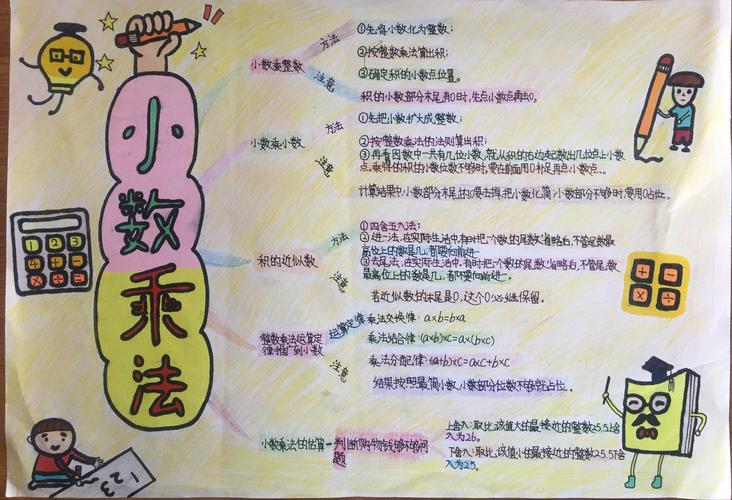 小数乘法
小数乘整数
方法
①先将小数化为整数；
②按整数乘法算出积；
③确定积的小数点位置。
注意
积的小数部分末尾有0时，先点小数点再去0。
小数乘小数
方法
①先把小数扩大成整数；
②按整数乘法的法则算出积；
③再看因数中一共有几位小数，就从积的右边起数出几位点上小数
点。乘得的积的小数位数不够时，要在前面用0补足再点小数点。
注意
计算结果中，小数部分末尾的0要去掉，把小数化简；小数部分不够时，要用0占位。
积的近似数
方法
①四舍五入法；
②进一法，在实际生活中，有时把一个数的尾数省略后，不管尾数最
高位上的数是几，都要向前进一
③去尾法，在实际生活中，有时把一个数的尾数省略后，不管尾数
最高位上的数是几，都不要向前进一。
注意
若近似数的末尾是0，这个0必须保留。
整数乘法运算定
律推广到小数
运算定律
乘法交换律：a×b=b×a
乘法结合律：(a×b)×c=a×(b×c)
乘法分配律：(a+b)×c=a×c+b×c
注意
结果按照最简小数，小数部分位数不够就占位。
小数乘法的估算—判断购物钱够不够的问
题
上舍入：取比该值大的最接近的整数25.5上舍
入为26。
下舍入：取比该值小的最接近的整数25.5下舍
入为25。
1 2 3
+ -
× ÷
123